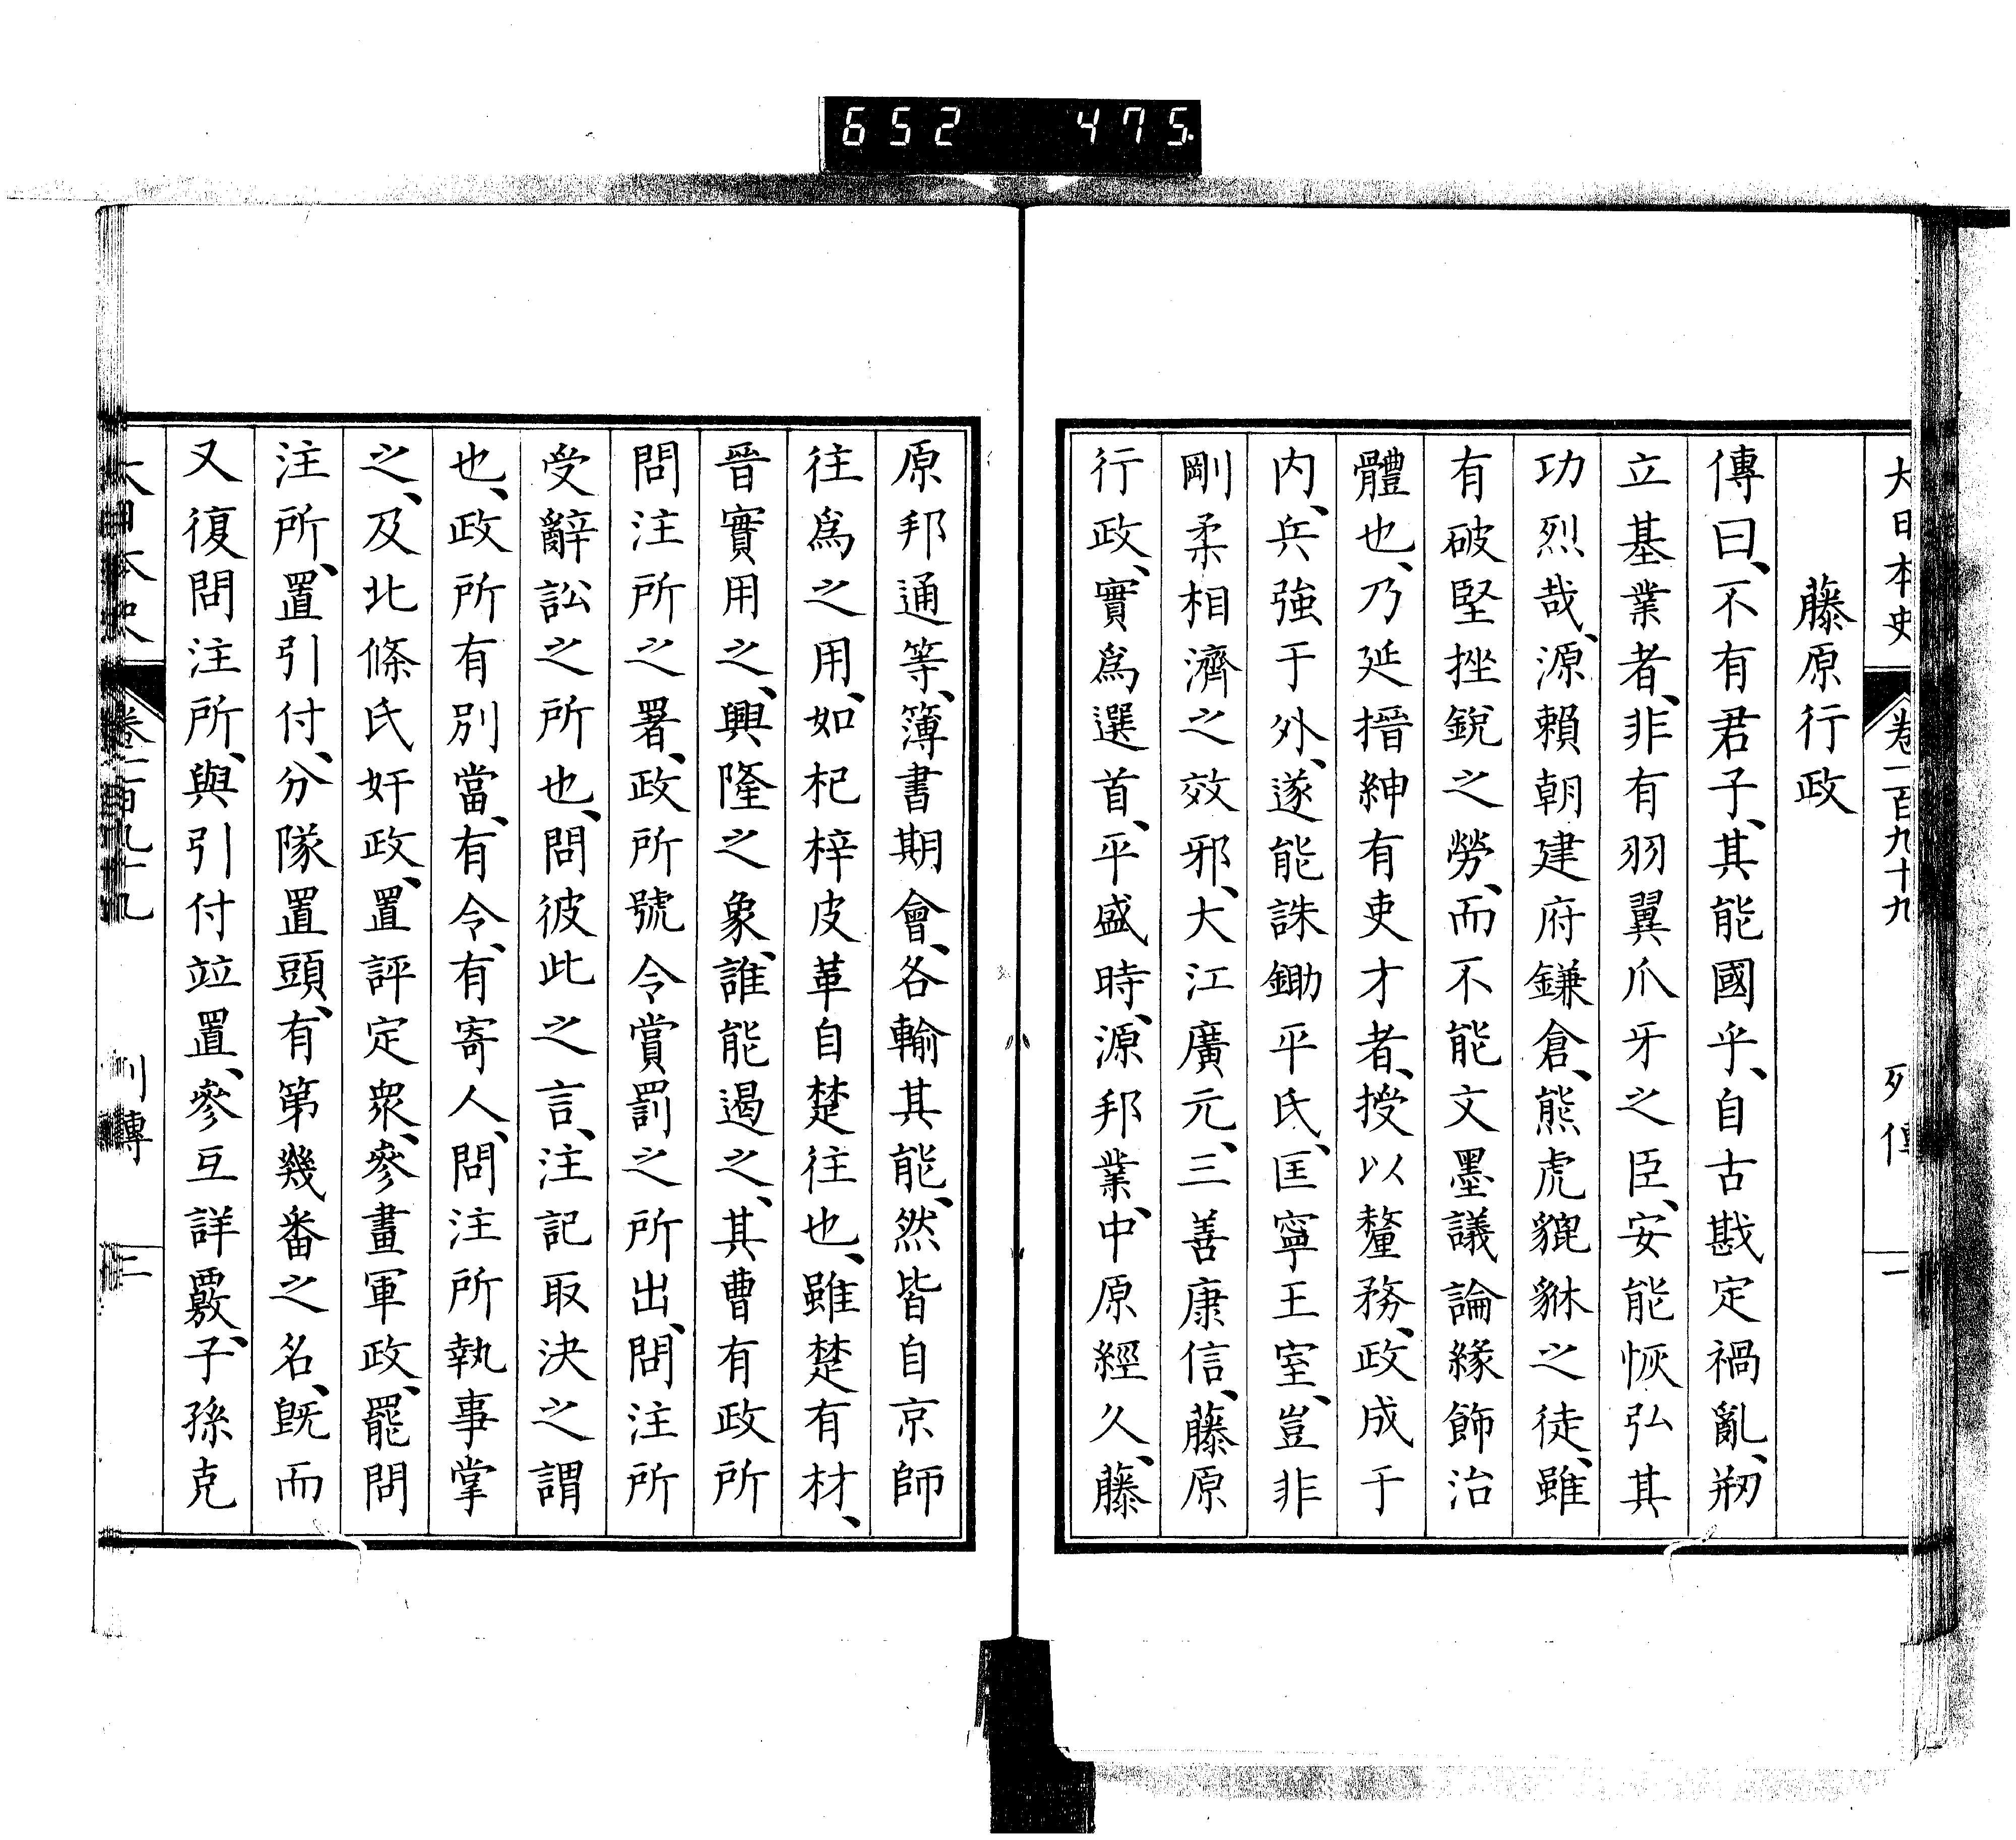 652 475
大日本史 卷一百九十九 列傳 一
藤原行政
傳曰、不有君子、其能國乎、自古戡定禍亂、刱
立基業者、非有羽翼爪牙之臣、安能恢弘其
功烈哉、源賴朝建府鎌倉、熊虎貔貅之徒、雖
有破堅挫銳之勞、而不能文墨議論緣飾治
體也、乃延搢紳有吏才者、授以釐務、政成于
内、兵強于外、遂能誅鋤平氏、匡寧王室、豈非
剛柔相濟之效邪、大江廣元、三善康信、藤原
行政、實爲選首、平盛時、源邦業、中原經久、藤
原邦通等、簿書期會、各輸其能、然皆自京師
往爲之用、如杞梓皮革自楚往也、雖楚有材、
晉實用之、興隆之象、誰能遏之、其曹有政所
問注所之署、政所號令賞罰之所出、問注所
受辭訟之所也、問彼此之言、注記取決之謂
也、政所有別當、有令、有寄人、問注所執事掌
之、及北條氏奸政、置評定衆、參畫軍政、罷問
注所、置引付、分隊置頭、有第幾番之名、既而
又復問注所、與引付竝置、參互詳覈、子孫克
大日本史 卷一百九十九 列傳 二